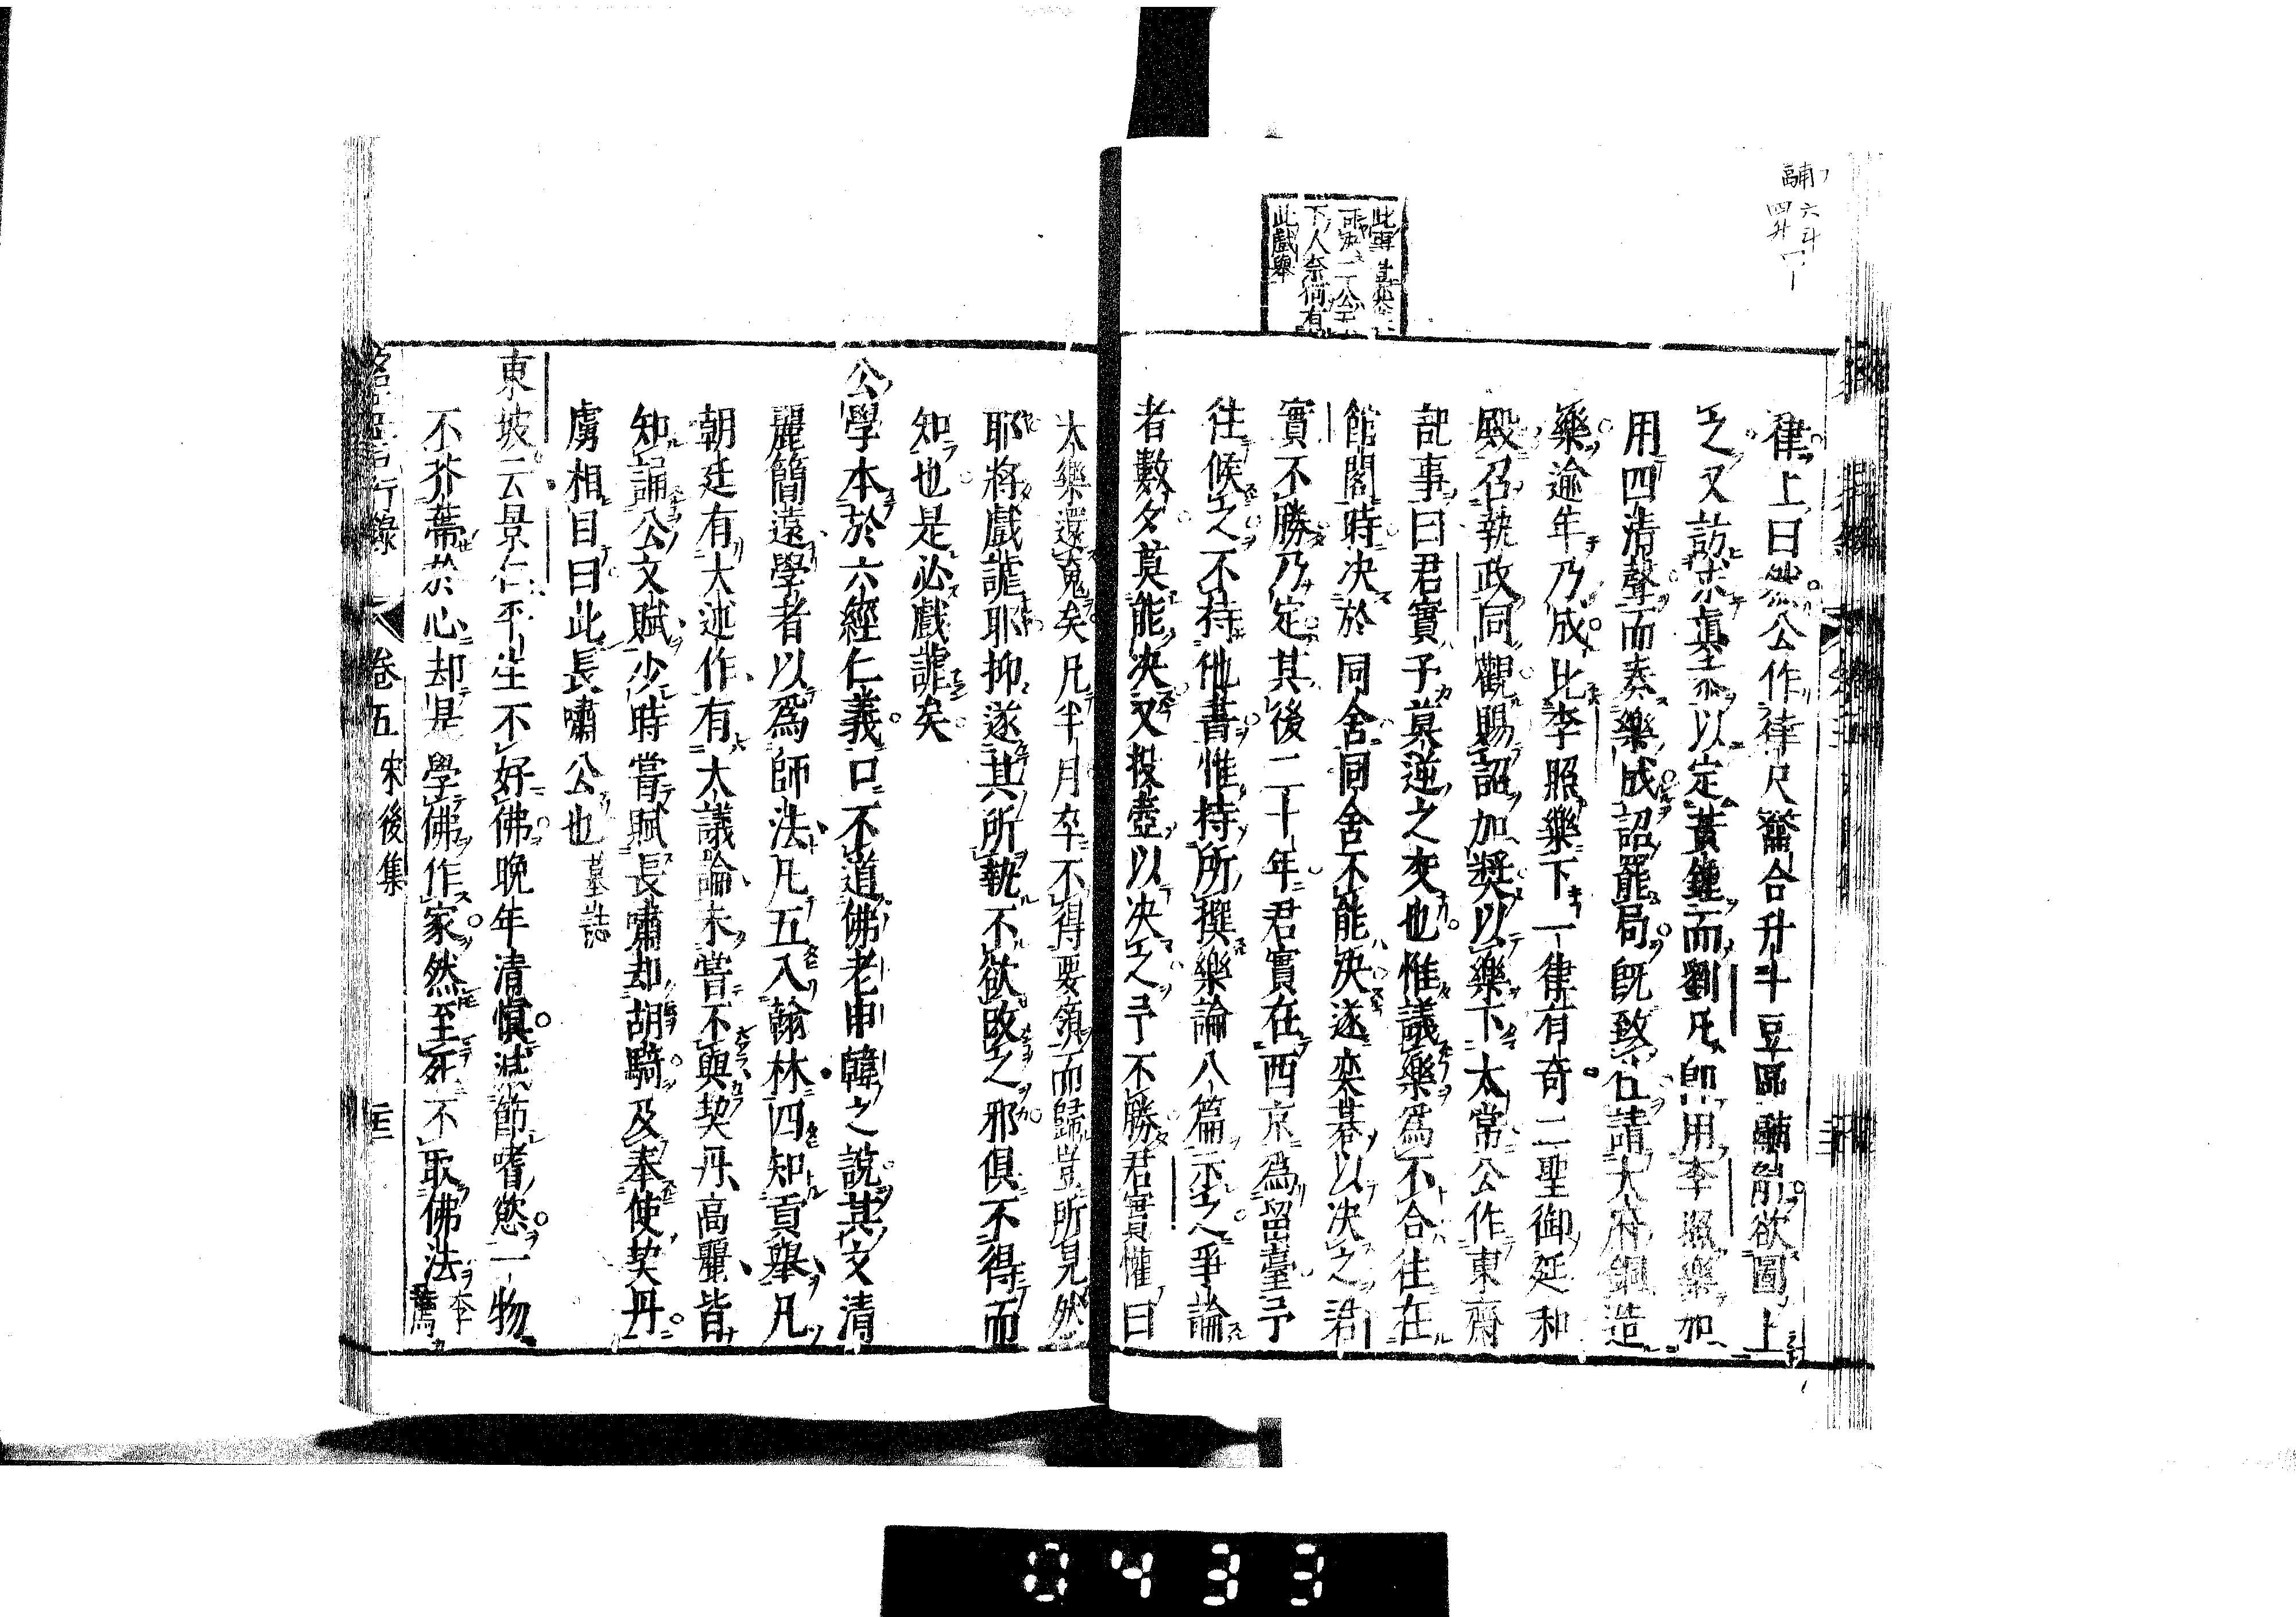 鬴六斗
四升
下人奈何有
此戲舉
律上曰然公作律尺籥合升斗豆區鬴斛欲圖上
之又訪求真黍以定黃鍾而劉几即用李照樂加
用四清聲而奏樂成詔罷局既致仕請太府銅造
樂逾年乃成比李照樂下一律有奇二聖御延和
殿召執政同觀賜詔加奬以樂下太常公作東齋
記事曰君實予莫逆之交也惟議樂爲不合往在
館閣時决於同舍同舍不能决遂奕棊以决之君
實不勝乃定其後二十年君實在西京爲留臺予
往候之不持他書惟持所撰樂論八篇示之爭論
者數夕莫能决又投壺以决之予不勝君實懽曰
大樂還魂矣凡半月卒不得要領而歸豈所見然
耶將戲謔耶抑遂其所執不欲改之邪俱不得而
知也是必戲謔矣
公學本於六經仁義口不道佛老申韓之說其文清
麗簡遠學者以爲師法凡五入翰林四知貢舉凡
朝廷有大述作有大議論未嘗不與契丹高麗皆
知誦公文賦少時嘗賦長嘯却胡騎及奉使契丹
虜相目曰此長嘯公也墓誌
東坡云景仁平生不好佛晚年清慎減節嗜慾一物
不芥蔕於心却是學佛作家然至死不取佛法李
廌
名臣言行錄 卷五 宋後集
0433